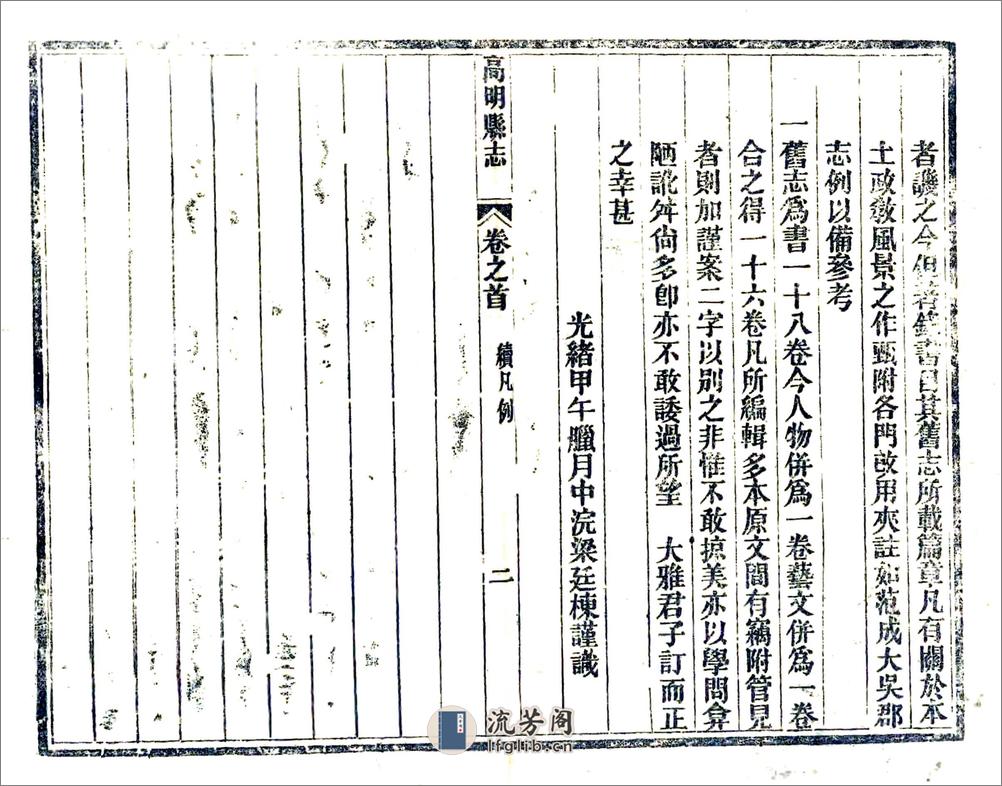 者譏之今但著錄書目其舊志所載篇章凡有關於本
土政敎風景之作甄附各門改用夾註如范成大吳郡
志例以備參考
一舊志爲書一十八卷今人物併爲一卷藝文併爲一卷
合之得一十六卷凡所編輯多本原文間有竊附管見
者則加謹案二字以別之非惟不敢掠美亦以學問弇
陋訛舛尙多卽亦不敢諉過所望 大雅君子訂而正
之幸甚
光緒甲午臘月中浣梁廷棟謹識
高明縣志 卷之首 續凡例 二
流芳阁
lfglib.cn